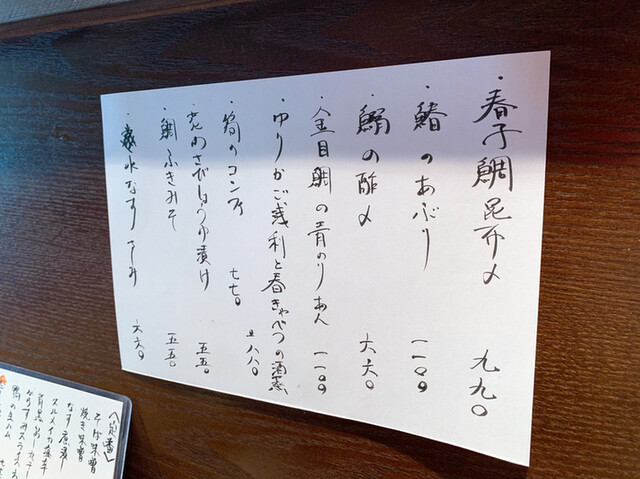 ・春子鯛昆布〆 九九〇
・鰆のあぶり 一一〇〇
・鰯の酢〆 六六〇
・金目鯛の青のりあん 一一〇〇
・ゆりかご浅利と春きゃべつの酒蒸 八八〇
・筍のコンフィ 七七〇
・花わさびしょうゆ漬け 五五〇
・鯛ふきみそ 五五〇
・水なすさしみ 六六〇
〈定番〉
そば味噌
焼き味噌